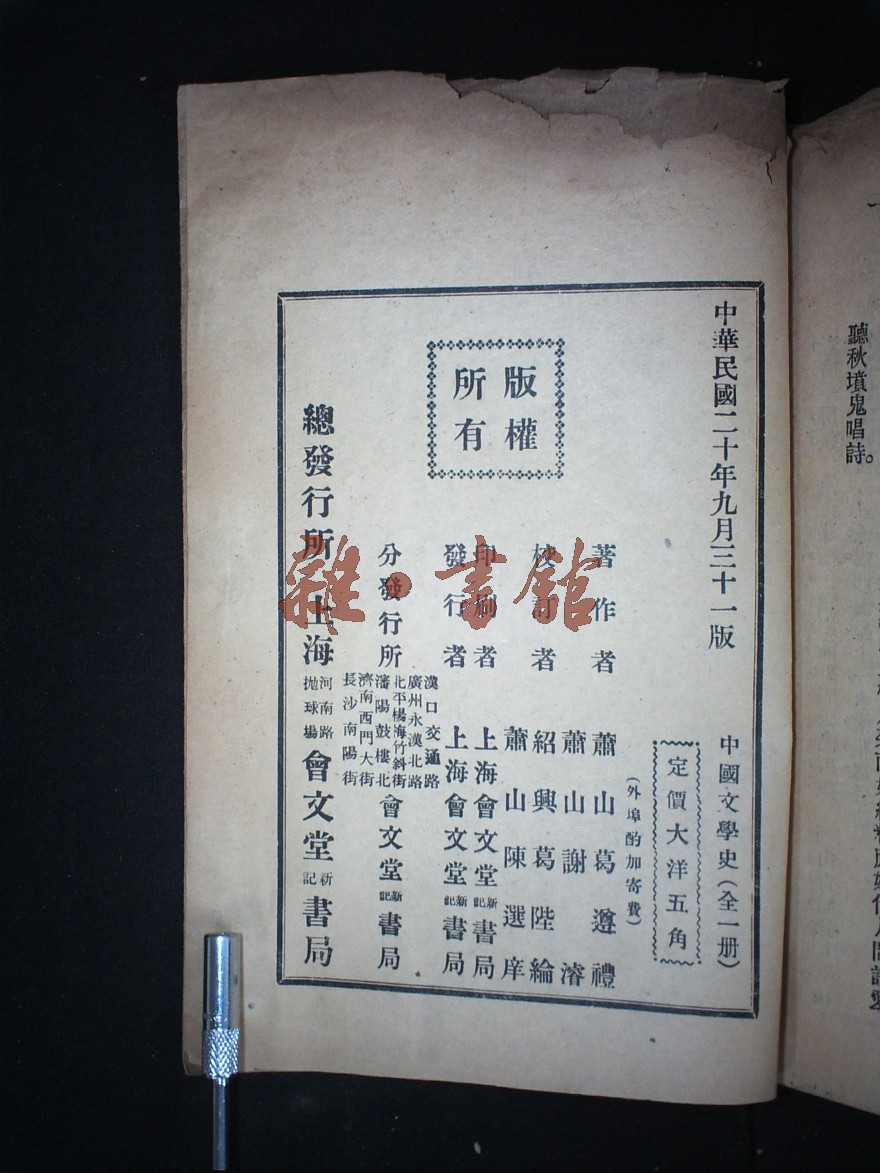 聽秋墳鬼唱詩。
中華民國二十年九月三十一版
中國文學史（全一册）
定價大洋五角
（外埠酌加寄費）
版權
所有
著作者 蕭山葛遵禮
蕭山謝濬
校訂者 紹興葛陛綸
蕭山陳選庠
印刷者 上海會文堂新記書局
發行者 上海會文堂新記書局
分發行所
漢口交通路
廣州永漢北路
北平楊梅竹斜街
瀋陽鼓樓北
濟南西門大街
長沙南陽街
會文堂新記書局
總發行所 上海
河南路
拋球場
會文堂新記書局
雜·書館